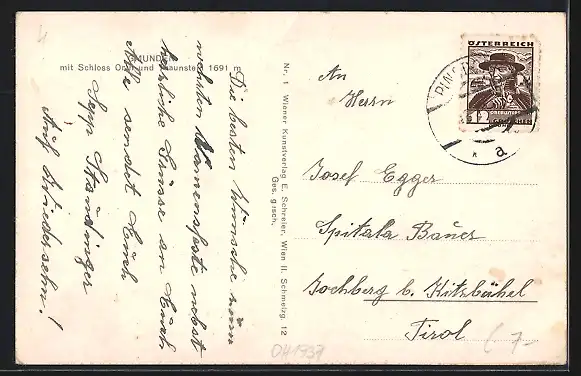 GMUNDEN
mit Schloss Ort und Traunstein 1691 m
Die besten Wünsche zum
nächsten Namensfeste nebst
herzliche Grüsse an Euch
Alle sendet Euch
Sepp Standinger
Auf Wiedersehn!
Nr. 1 Wiener Kunstverlag E. Schreier, Wien II. Schmelzg. 12
Ges. gesch.
An
Herrn
Josef Egger
Spitala Bauer
Jochberg b. Kitzbühel
Tirol
ÖSTERREICH
12
GROSCHEN
a
7-